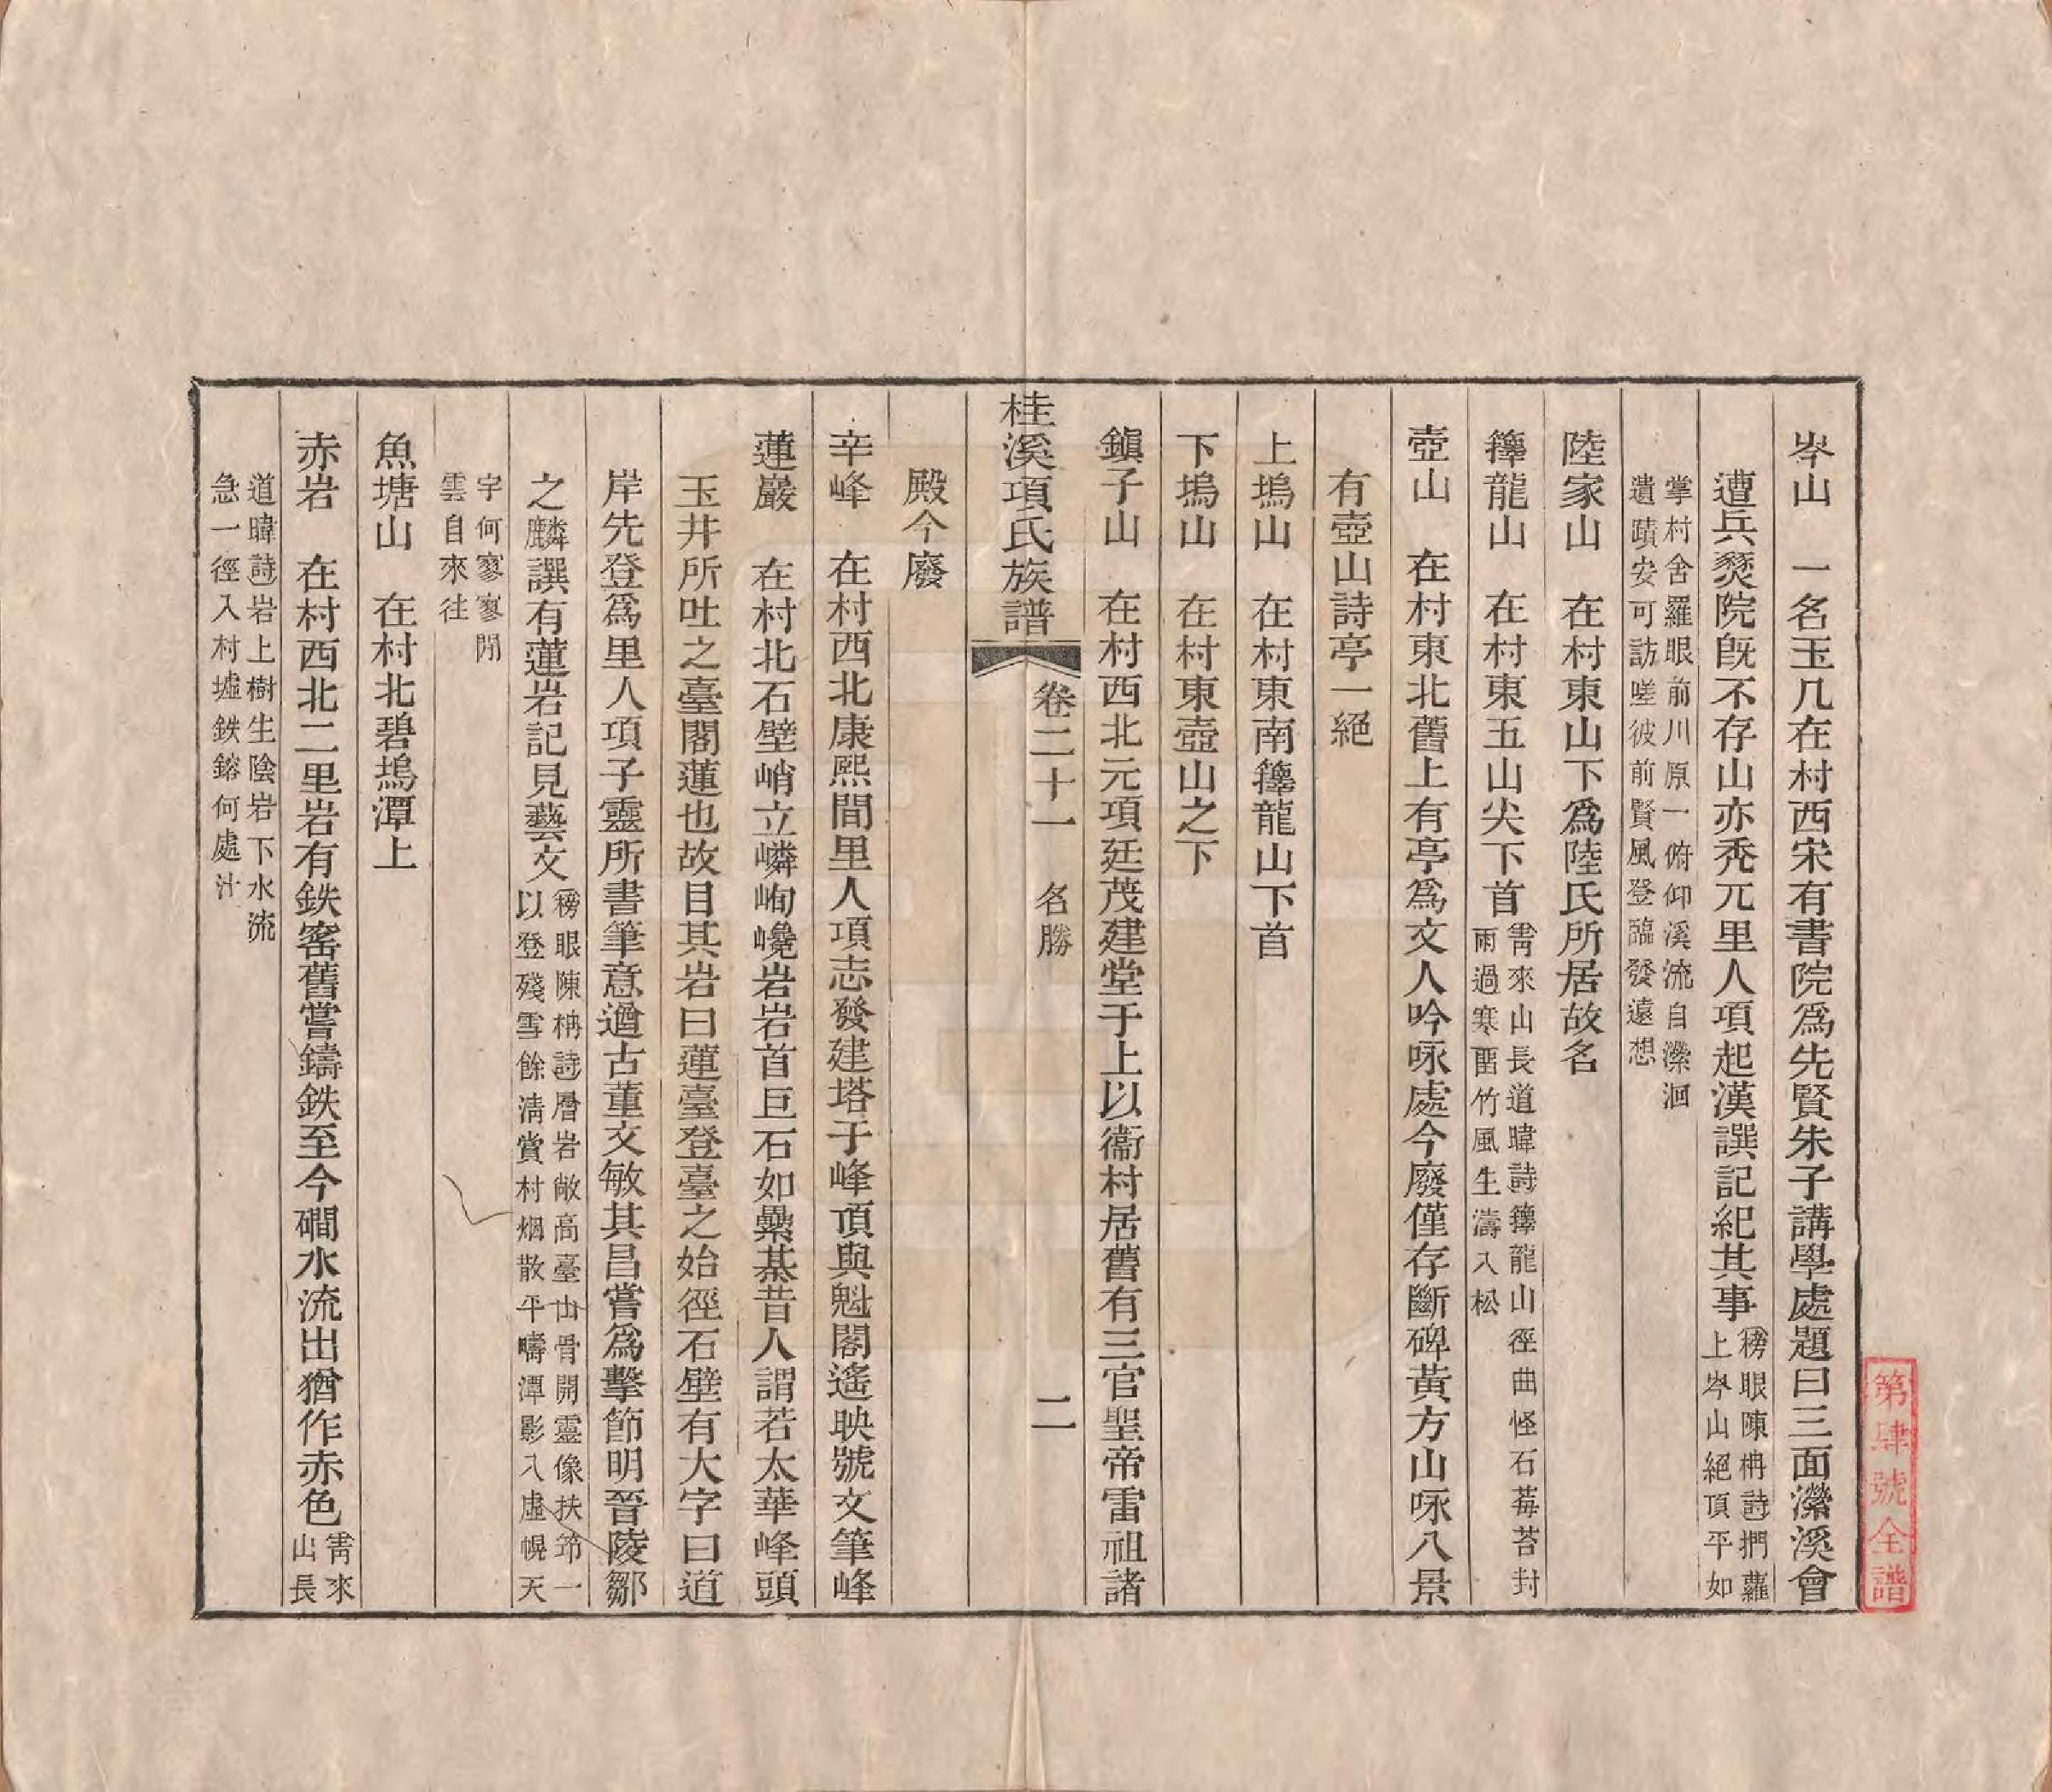 岑山　一名玉几在村西宋有書院爲先賢朱子講學處題曰三面瀠溪會
遭兵燹院旣不存山亦禿兀里人項起漢譔記紀其事
榜眼陳冉詩捫蘿
上岑山絕頂平如
掌村舍羅眼前川原一俯仰溪流自瀠洄
遺蹟安可訪嗟彼前賢風登臨發遠想
陸家山　在村東山下爲陸氏所居故名
籜龍山　在村東五山尖下首
霱來山長道暐詩籜龍山徑曲怪石莓苔封
雨過寒畱竹風生濤入松
壺山　在村東北舊上有亭爲文人吟咏處今廢僅存斷碑黃方山咏八景
有壺山詩亭一絕
上塢山　在村東南籜龍山下首
下塢山　在村東壺山之下
鎭子山　在村西北元項廷茂建堂于上以衞村居舊有三官聖帝雷祖諸
桂溪項氏族譜　卷二十一　名勝　二
殿今廢
辛峰　在村西北康熙間里人項志發建塔于峰頂與魁閣遙映號文筆峰
蓮巖　在村北石壁峭立嶙峋巉岩岩首巨石如纍棊昔人謂若太華峰頭
玉井所吐之臺閣蓮也故目其岩曰蓮臺登臺之始徑石壁有大字曰道
岸先登爲里人項子靈所書筆意遒古董文敏其昌嘗爲擊節明晉陵鄒
之麟譔有蓮岩記見藝文
榜眼陳冉詩層岩敞高臺山骨開靈像扶筇一
以登殘雪餘淸賞村烟散平疇潭影入虛幌天
宇何寥寥閒
雲自來往
魚塘山　在村北碧塢潭上
赤岩　在村西北二里岩有鉄窰舊嘗鑄鉄至今磵水流出猶作赤色
霱來
山長
道暐詩岩上樹生陰岩下水流
急一徑入村墟鉄鎔何處汁
第肆號全譜